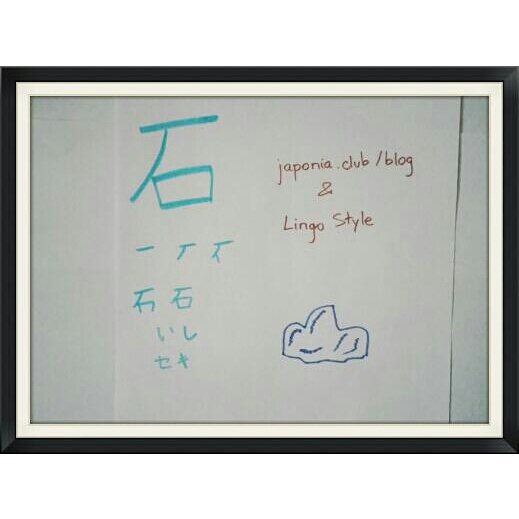 石
一 丆 丆
石 石
いし
セキ
japonia.club/blog
&
Lingo Style